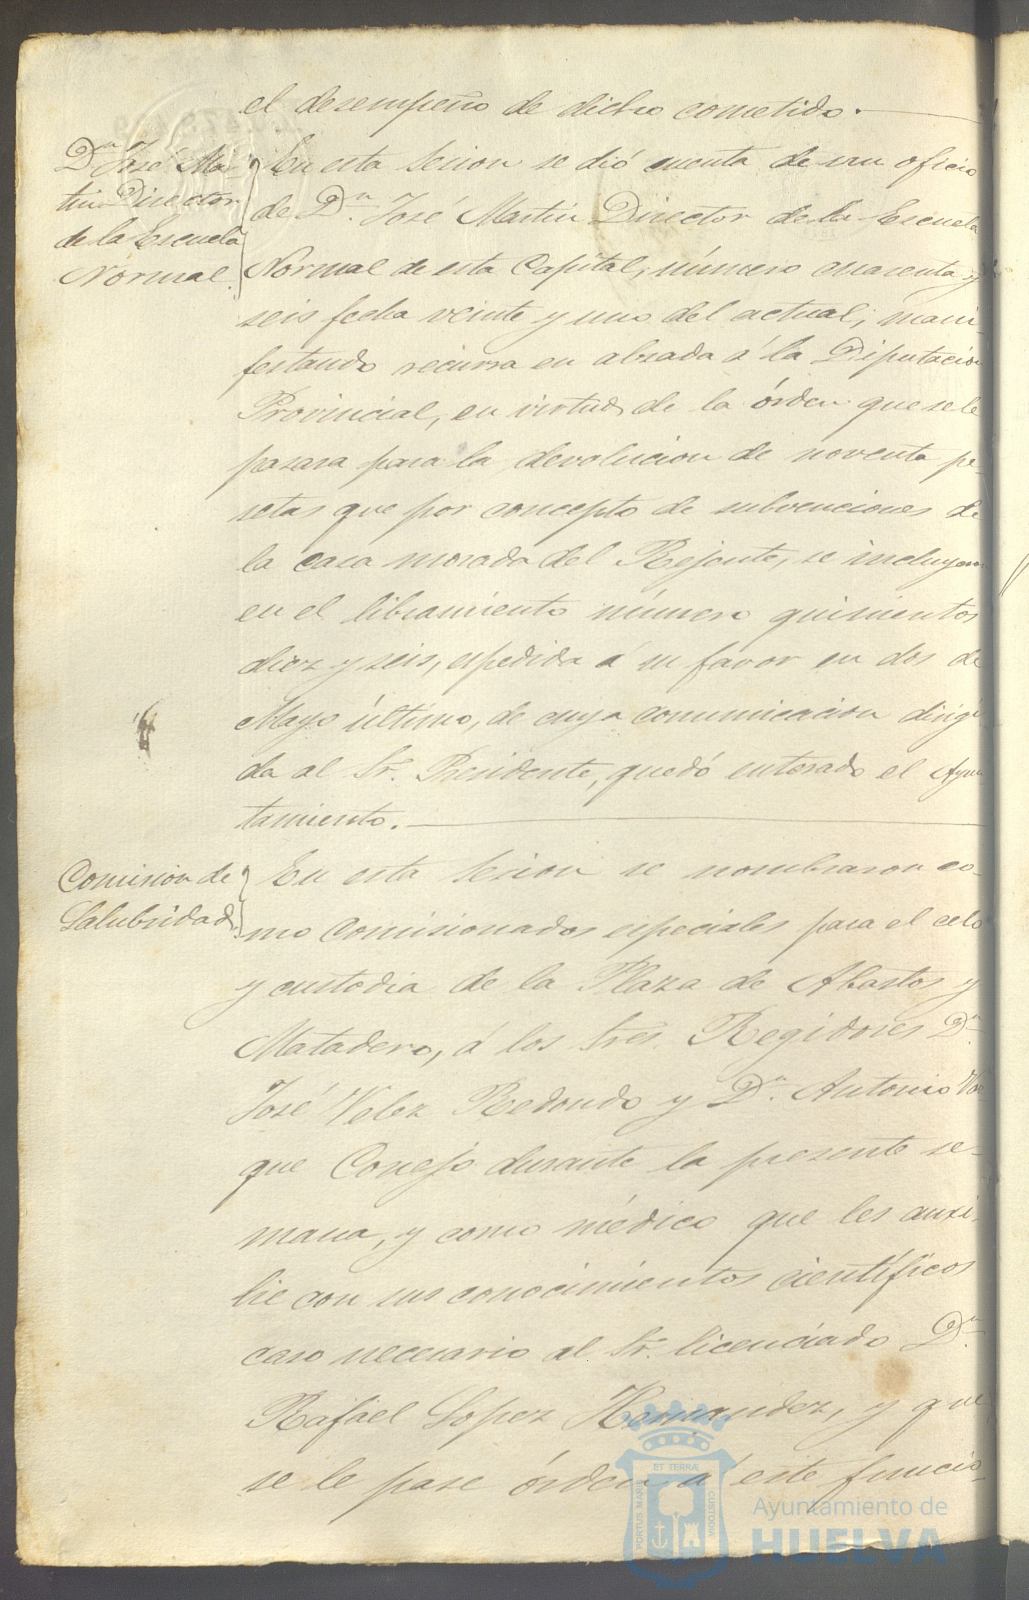 el desempeño de dicho cometido.
Dn. José Mar
tin Director
de la Escuela
Normal.
En esta sesion se dió cuenta de un oficio
de Dn. José Martin Director de la Escuela
Normal de esta Capital, número cuarenta y
seis fecha veinte y uno del actual, mani-
festando recurra en alzada á la Diputacion
Provincial, en virtud de la órden que se le
pasara para la devolucion de noventa pe-
setas que por concepto de subvenciones de
la casa morada del Rejente, se incluyeron
en el libramiento número quinientos
diez y seis, espedida á su favor en dos de
Mayo último, de cuya comunicacion dirigi-
da al Sr. Presidente, quedó enterado el Ayun
tamiento.
Comision de
Salubridad.
En esta sesion se nombraron co-
mo Comisionados especiales para el celo
y custodia de la Plaza de Abastos y
Matadero, á los Sres. Regidores Dn.
José Velez Redondo y Dn. Antonio Vaz
que Conejo durante la presente se-
mana, y como médico que les auxi-
lie con sus conocimientos científicos
caso necesario al Sr. licenciado Dn.
Rafael Lopez Hernandez, y que
se le pase órden á este funcio
ET TERRÆ
PORTUS MARIS
CUSTODIA
Ayuntamiento de
HUELVA